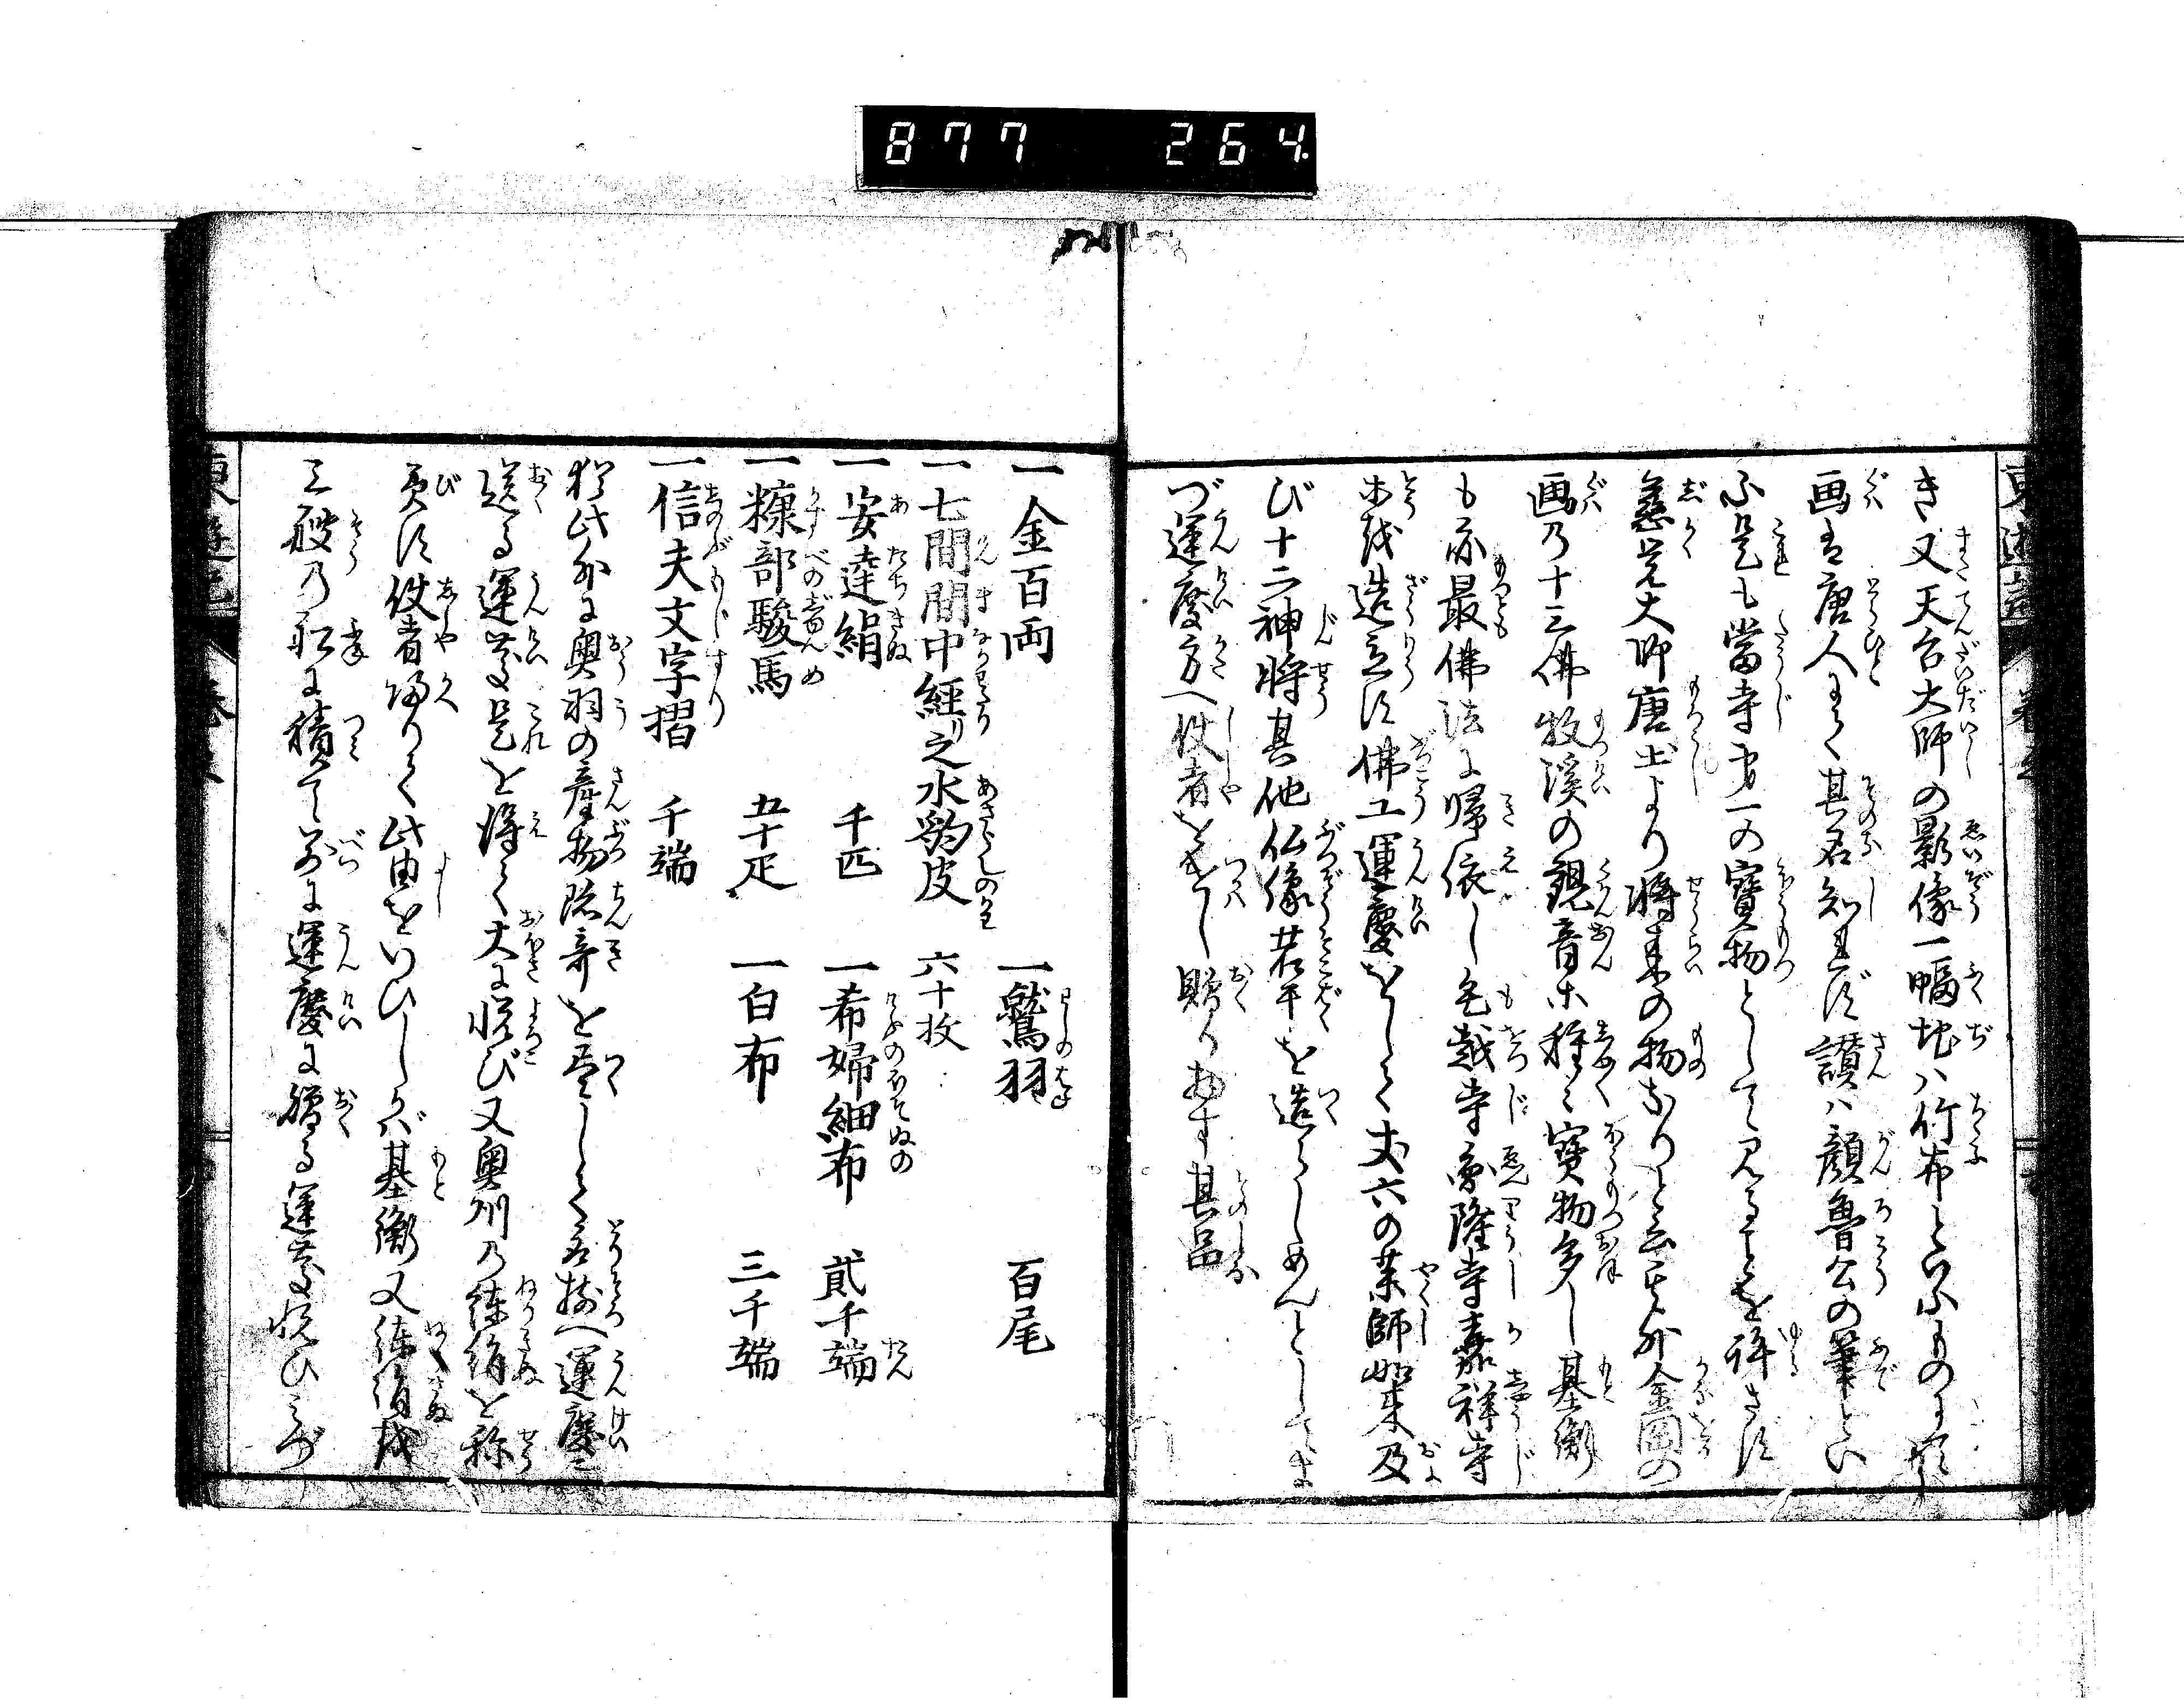 877 264
き又天台大師の影像一幅地ハ竹布といふものに
画は唐人にて其名知れず讃ハ顔魯公の筆とい
ふ是も當寺第一の寶物として見ることを許さず
慈覚大師唐土より将来の物なりと云其外金岡の
画の十三佛牧溪の観音等種々寶物多し基衡
も亦最佛法に帰依し毛越寺圓隆寺嘉祥寺
等を造立す佛工運慶をして丈六の薬師如来及
び十二神将其他仏像若干を造らしめんとしてま
づ運慶方へ使者をつかはし贈りものす其品
一金百両 一鷲羽 百尾
一七間間中経り之水豹皮 六十枚
一安達絹 千匹 一希婦細布 貮千端
一糠部駿馬 五十疋 一白布 三千端
一信夫文字摺 千端
猶此外に奥羽の産物珎奇を尽して取揃へ運慶に
送る運慶是を得て大に悦び又奥州の練絹を称
美す使者帰りて此由をいひしかバ基衡又練絹を
三艘の船に積て別に運慶に贈る運慶悦ひ